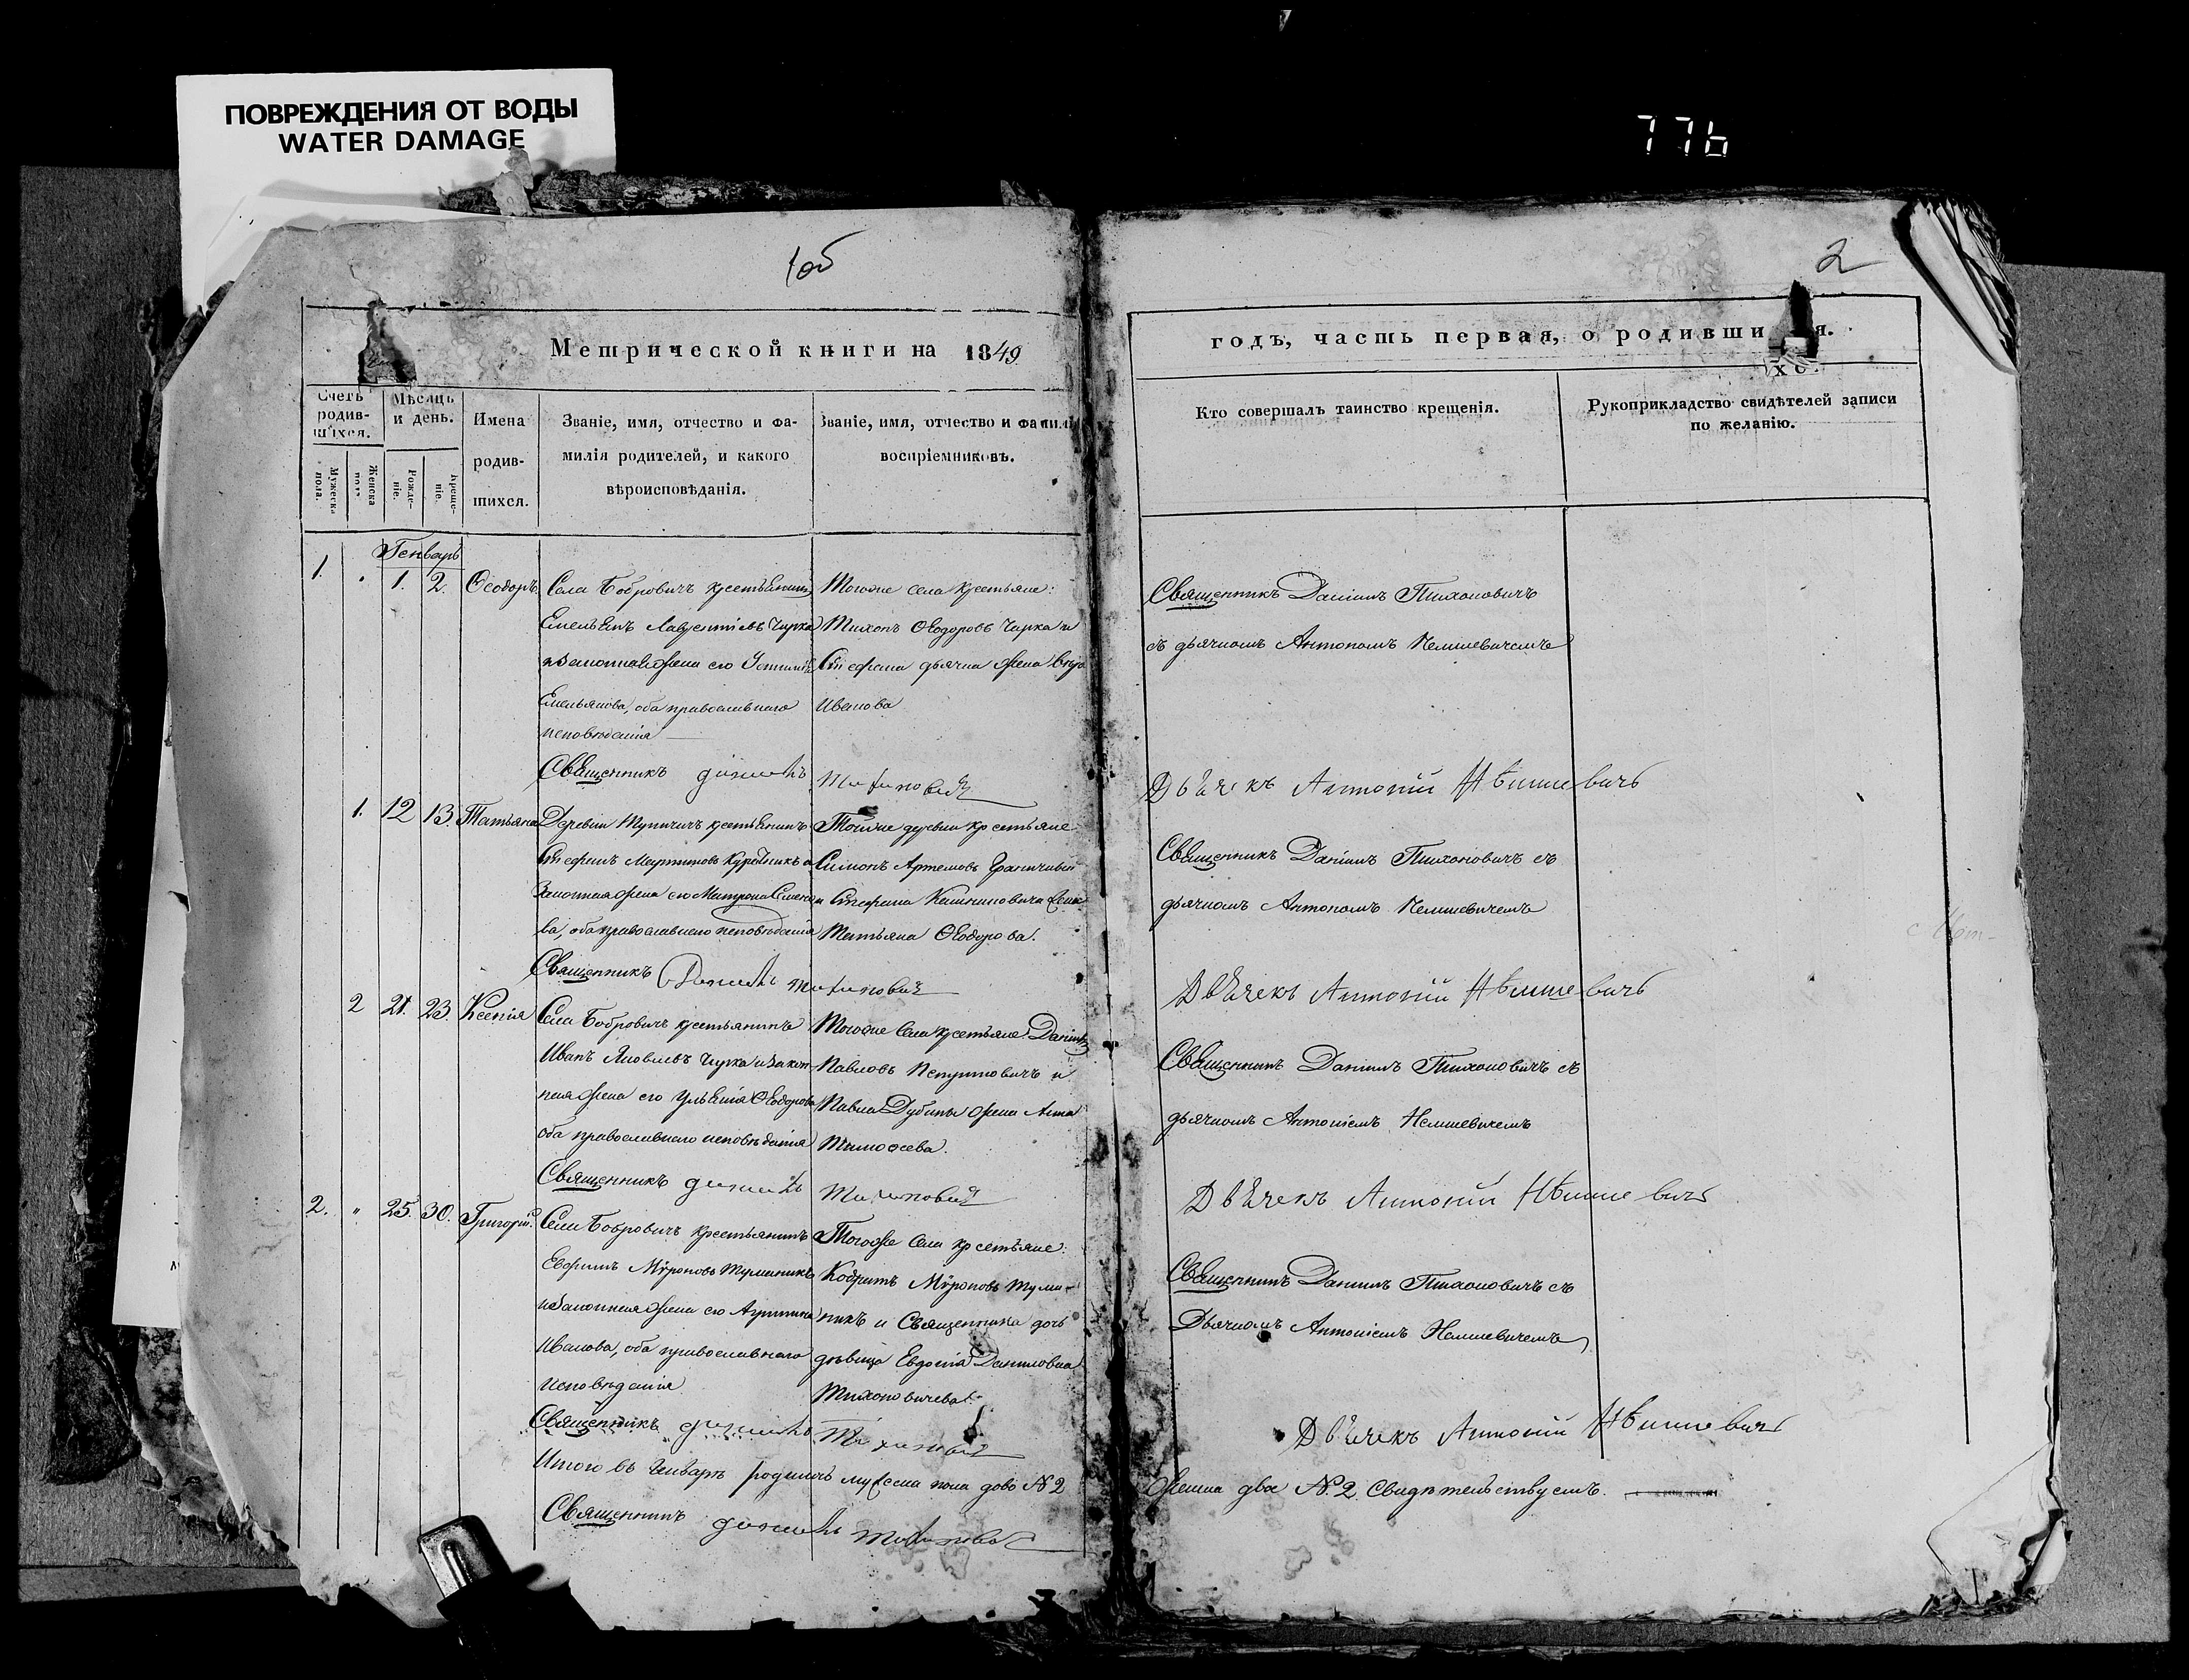 ПОВРЕЖДЕНИЯ ОТ ВОДЫ
WATER DAMAGE
776
1об
2
Метрической книги на 1849
годъ, часть первая, о родивши я.
хс
Счетъ родив-шихся.
Мѣсяцъ и день.
Имена родив-шихся.
Званіе, имя, отчество и фа-
милія родителей, и какого
вѣроисповѣданія.
Званіе, имя, отчество и фамилі
воспріемниковъ.
Мужеска пола.
Женска пола.
Рожде-ніе.
Креще-ніе.
Кто совершалъ таинство крещенія.
Рукоприкладство свидѣтелей записи
по желанію.
Генварь
1. " 1. 2. Ѳеодоръ
Села Бобровичъ крестьянинъ
Емельянъ Лаврентіевъ Чирка
и законная жена его
Емельянова, оба православнаго
исповѣданія
Тогоже села крестьяне:
Тихонъ Ѳеодоровъ Чирка и
Стефана дьячка жена
Иванова
Священникъ Даніилъ Тихоновичъ
Священникъ Даніилъ Тихоновичъ
съ дьячкомъ Антономъ Немшевичемъ
Дьячекъ Антоній Нѣмшевичъ
1. 12 13. Татьяна
Деревни Тупичичъ крестьянинъ
Стефанъ Мартиновъ и
Законная жена его Матрона Семено
ва, оба православнаго исповѣданія
Тойже деревни крестьяне
Симонъ Артемовъ
и Стефана жена
Татьяна Ѳеодорова.
Священникъ Даніилъ Тихоновичъ
Священникъ Даніилъ Тихоновичъ съ
дьячкомъ Антономъ Немшевичемъ
Дьячекъ Антоній Нѣмшевичъ
2 21. 23. Ксенія
Села Бобровичъ крестьянинъ
Иванъ Яковлевъ Чирка и закон
ная жена его Ульянія Ѳеодорова
оба православнаго исповѣданія
Тогоже села крестьяне Даніилъ
Павловъ и
Павла Дубины жена Анна
Тимоѳеева.
Священникъ Даніилъ Тихоновичъ
Священникъ Даніилъ Тихоновичъ съ
дьячкомъ Антоніемъ Немшевичемъ
Дьячекъ Антоній Нѣмшевичъ
2. " 25. 30. Григорій
Села Бобровичъ крестьянинъ
Ефримъ Мѵроновъ Туманикъ
и законная жена его
Иванова, оба православнаго
исповѣданія
Тогоже села крестьяне:
Кодратъ Мѵроновъ Тума-
никъ и Священника дочь
дѣвица Евдокія Даниловна
Тихоновичева.
Священникъ Даніилъ Тихоновичъ
Священникъ Даніилъ Тихоновичъ съ
Дьячкомъ Антоніемъ Немшевичемъ
Дьячекъ Антоній Нѣмшевичъ
Итого въ Генварѣ родилось мужеска пола дово №2
женска два №2. Свидѣтельствуемъ.
Священникъ Даніилъ Тихоновичъ